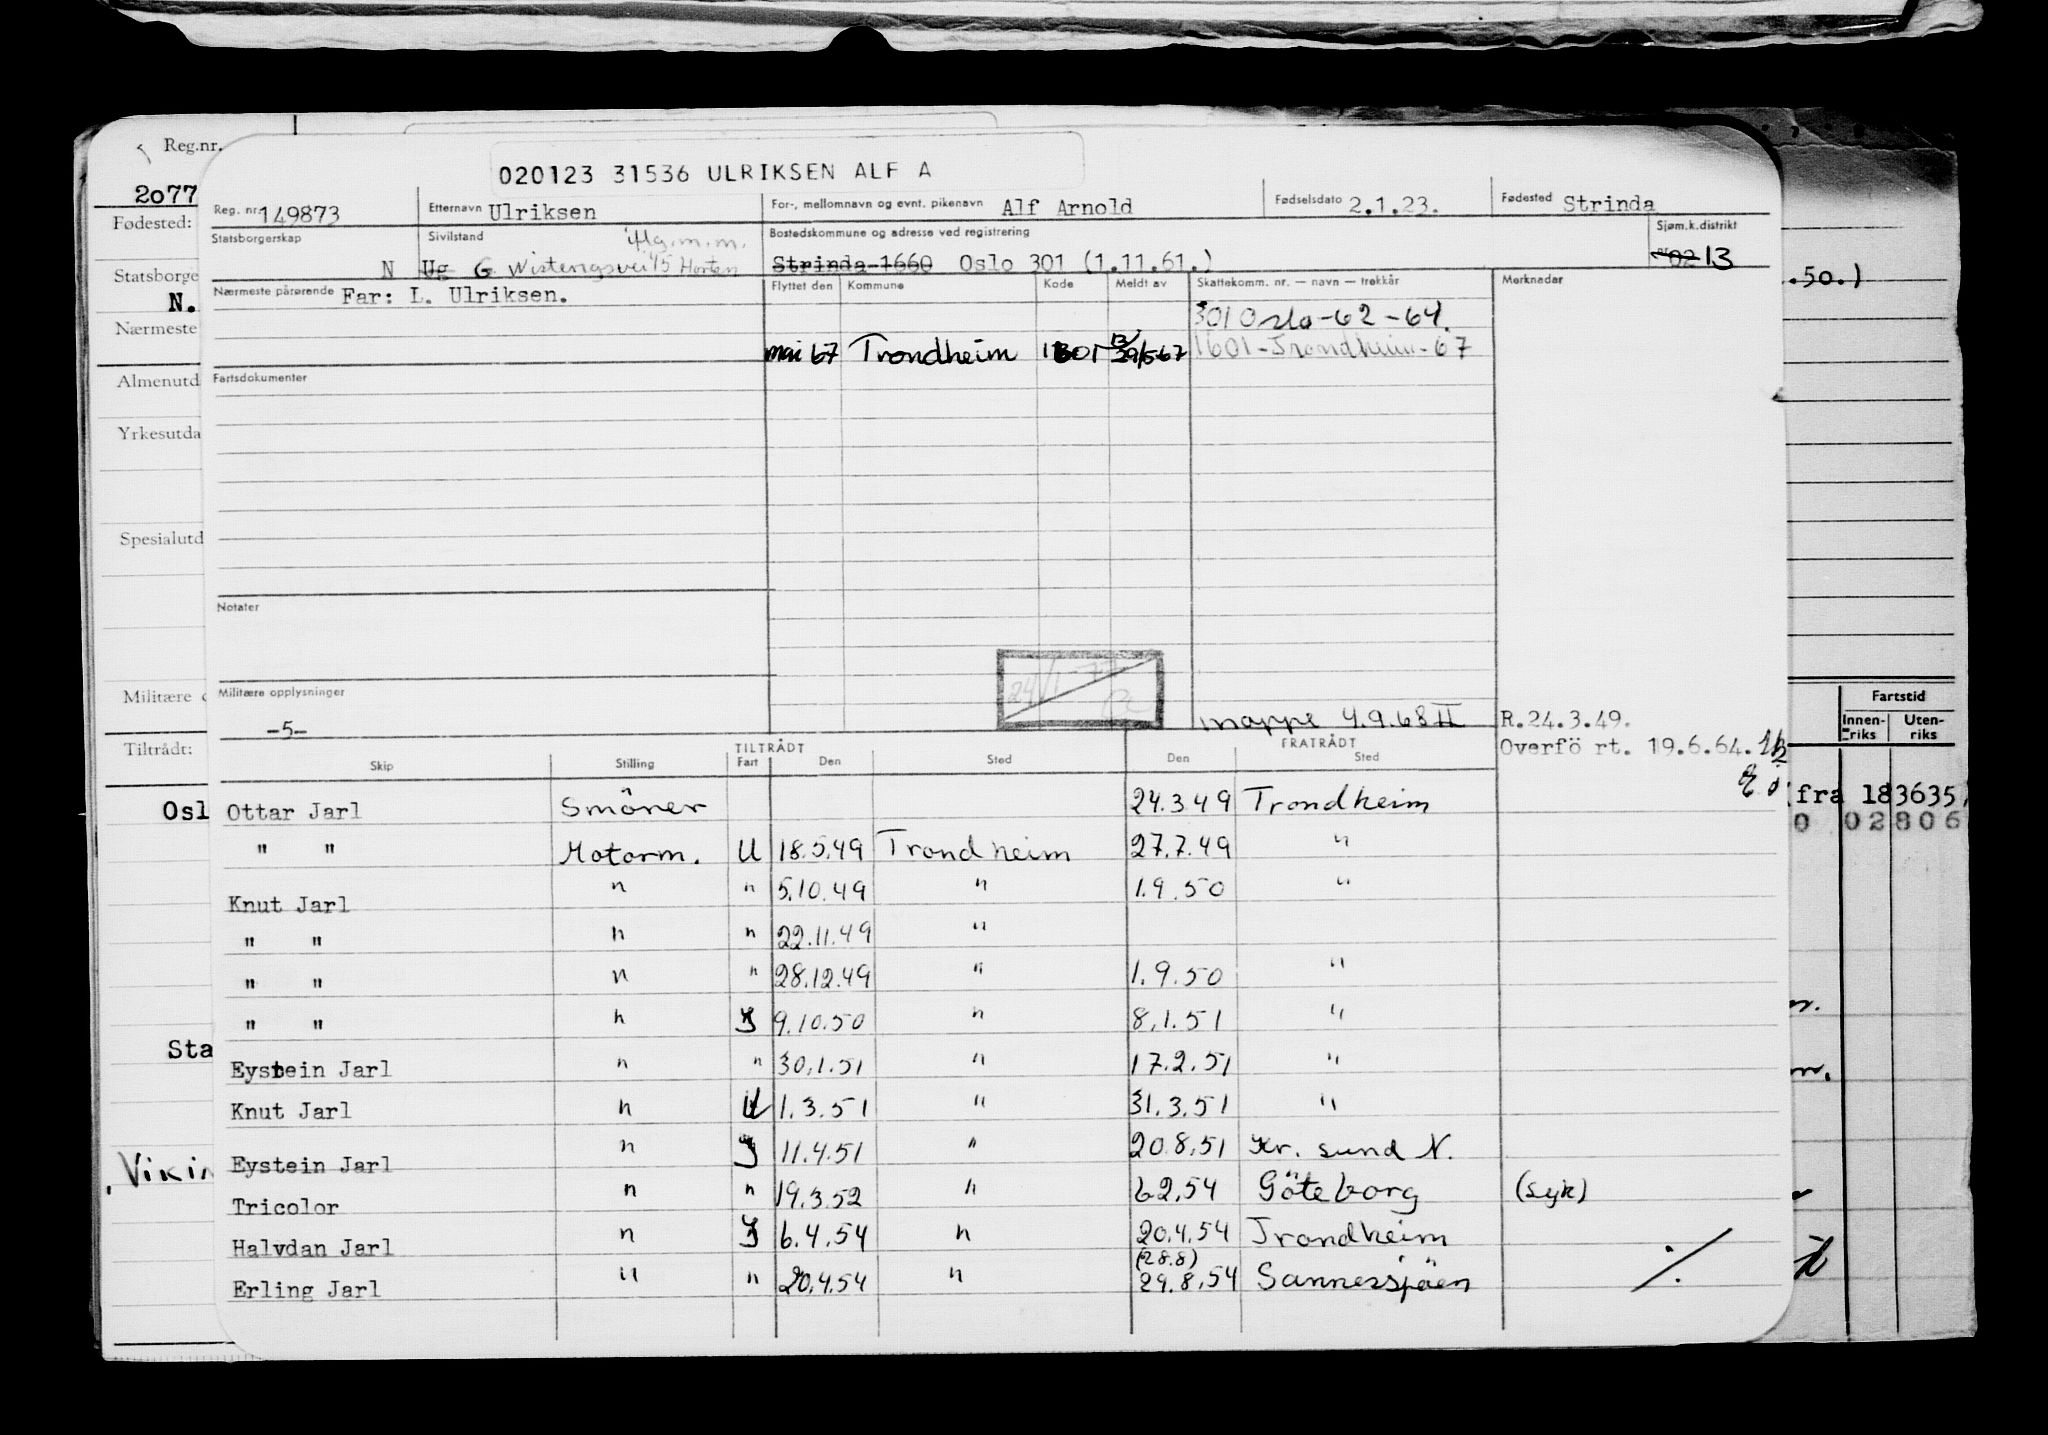 Reg.nr.
020123 31536 ULRIKSEN ALF A
2077
Reg. nr. 149873 Etternavn Ulriksen For-, mellomnavn og evnt. pikenavn Alf Arnold Fødselsdato 2.1.23. Fødested Strinda
Fødested:
Statsborgerskap N Sivilstand Ug G Bostedskommune og adresse ved registrering Strinda 1660 Oslo 301 (1.11.61.) Sjøm.k.distrikt 02 13
Wistengsvei 45 Horten
Statsborge
N.
.50.)
Nærmeste pårørende Far: L. Ulriksen. Flyttet den Kommune Kode Meldt av Skattekomm. nr. — navn — trekkår Merknader
301 Oslo-62-64.
Nærmeste
mai 67 Trondheim 1601 29/5-67 1601-Trondheim-67
Almenutd Fartsdokumenter
Yrkesutda
Spesialutd
Notater
Militære Militære opplysninger
-5-
24/1-77
mappe 4.9.68 II R.24.3.49.
Overfö rt. 19.6.64.
Fartstid
Innen-riks Uten-riks
Tiltrådt:
TILTRÅDT FRATRÅDT
Skip Stilling Fart Den Sted Den Sted
Osl (fra 183635,
0 02806
Ottar Jarl Smörer 24.3.49 Trondheim
" " Motorm. U 18.5.49 Trondheim 27.7.49 "
Knut Jarl " " 5.10.49 " 1.9.50 "
" " " " 22.11.49 "
" " " " 28.12.49 " 1.9.50 "
" " " J 9.10.50 " 8.1.51 "
Sta
Eystein Jarl " " 30.1.51 " 17.2.51 "
Knut Jarl " U 1.3.51 " 31.3.51 "
Eystein Jarl " J 11.4.51 " 20.8.51 Kr. sund N.
Vikin
Tricolor " " 19.3.52 " 6.2.54 Göteborg (syk)
Halvdan Jarl " J 6.4.54 " 20.4.54 Trondheim
(28.8)
Erling Jarl " " 20.4.54 " 29.8.54 Sannessjöen ./.